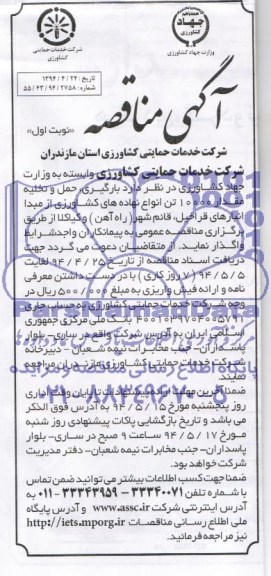 جهاد کشاورزی
شرکت خدمات حمایتی کشاورزی
وزارت جهاد کشاورزی
تاریخ: ۱۳۹۴/۴/۲۲
شماره: ۵۵/۴۳/۹۴/۲۷۵۸
آگهی مناقصه
«نوبت اول»
شرکت خدمات حمایتی کشاورزی استان مازندران
شرکت خدمات حمایتی کشاورزی وابسته به وزارت
جهاد کشاورزی در نظر دارد بارگیری، حمل و تخلیه
مقدار ۱۰۰۰۰ تن انواع نهاده های کشاورزی از مبدا
انبارهای قراخیل، قائم شهر (راه آهن) و کیاکلا از طریق
برگزاری مناقصه عمومی به پیمانکاران واجد شرایط
واگذار نماید. از متقاضیان دعوت می گردد جهت
دریافت اسناد مناقصه از تاریخ ۹۴/۴/۲۵ لغایت
۹۴/۵/۵ (۷ روز کاری) با در دست داشتن معرفی
نامه و ارائه فیش واریزی به مبلغ ۵۰۰/۰۰۰ ریال در
وجه شرکت خدمات حمایتی کشاورزی به حساب جاری
ملی مرکزی جمهوری
اسلامی ایران به آدرس شرکت واقع در ساری - بلوار
پاسداران - جنب مخابرات نیمه شعبان - دبیرخانه
شرکت خدمات حمایتی کشاورزی مازندران مراجعه
نمایند.
ضمنا آخرین مهلت پیشنهادات تا پایان وقت اداری
روز پنجشنبه مورخ ۹۴/۵/۱۵ به آدرس فوق الذکر
می باشد و تاریخ بازگشایی پاکات پیشنهادی روز شنبه
مورخ ۹۴/۵/۱۷ ساعت ۹ صبح در ساری - بلوار
پاسداران - جنب مخابرات نیمه شعبان - دفتر مدیریت
شرکت خواهد بود.
ضمنا جهت کسب اطلاعات بیشتر می توانید ضمن تماس
با شماره تلفن ۳۳۳۴۰۰۷۱ - ۳۳۳۴۳۹۵۹ - ۰۱۱ به
آدرس اینترنتی شرکت www.assc.ir و آدرس پایگاه
ملی اطلاع رسانی مناقصات http://iets.mporg.ir
نیز مراجعه فرمائید.
ParsNamadData
پایگاه اطلاع رسانی مناقصات و مزایده
۰۲۱-۸۸۳۴۹۶۷۰-۵